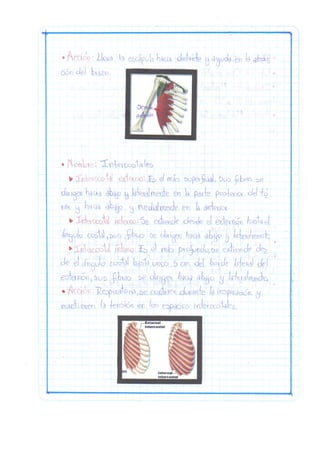 • Acción: Lleva la escápula hacia delante y ayuda en la
ción del brazo.
• Nombre: Intercostales
▸ Intercostal externo: Es el más superficial. Sus fibras se
dirigen hacia abajo y lateralmente en la parte posterior del tó
rax y hacia abajo y medialmente en la anterior.
▸ Intercostal interno: Se extiende desde el esternón hasta el
ángulo costal, sus fibras se dirigen hacia abajo y lateralmente.
▸ Intercostal íntimo: Es el más profundo, se extiende des
de el ángulo costal hasta unos 5 cm del borde lateral del
esternón, sus fibras se dirigen hacia abajo y lateralmente.
• Acción: Respiratoria, se contrae durante la inspiración y
mantienen la tensión en los espacios intercostales.
External
intercostal
Internal
intercostal